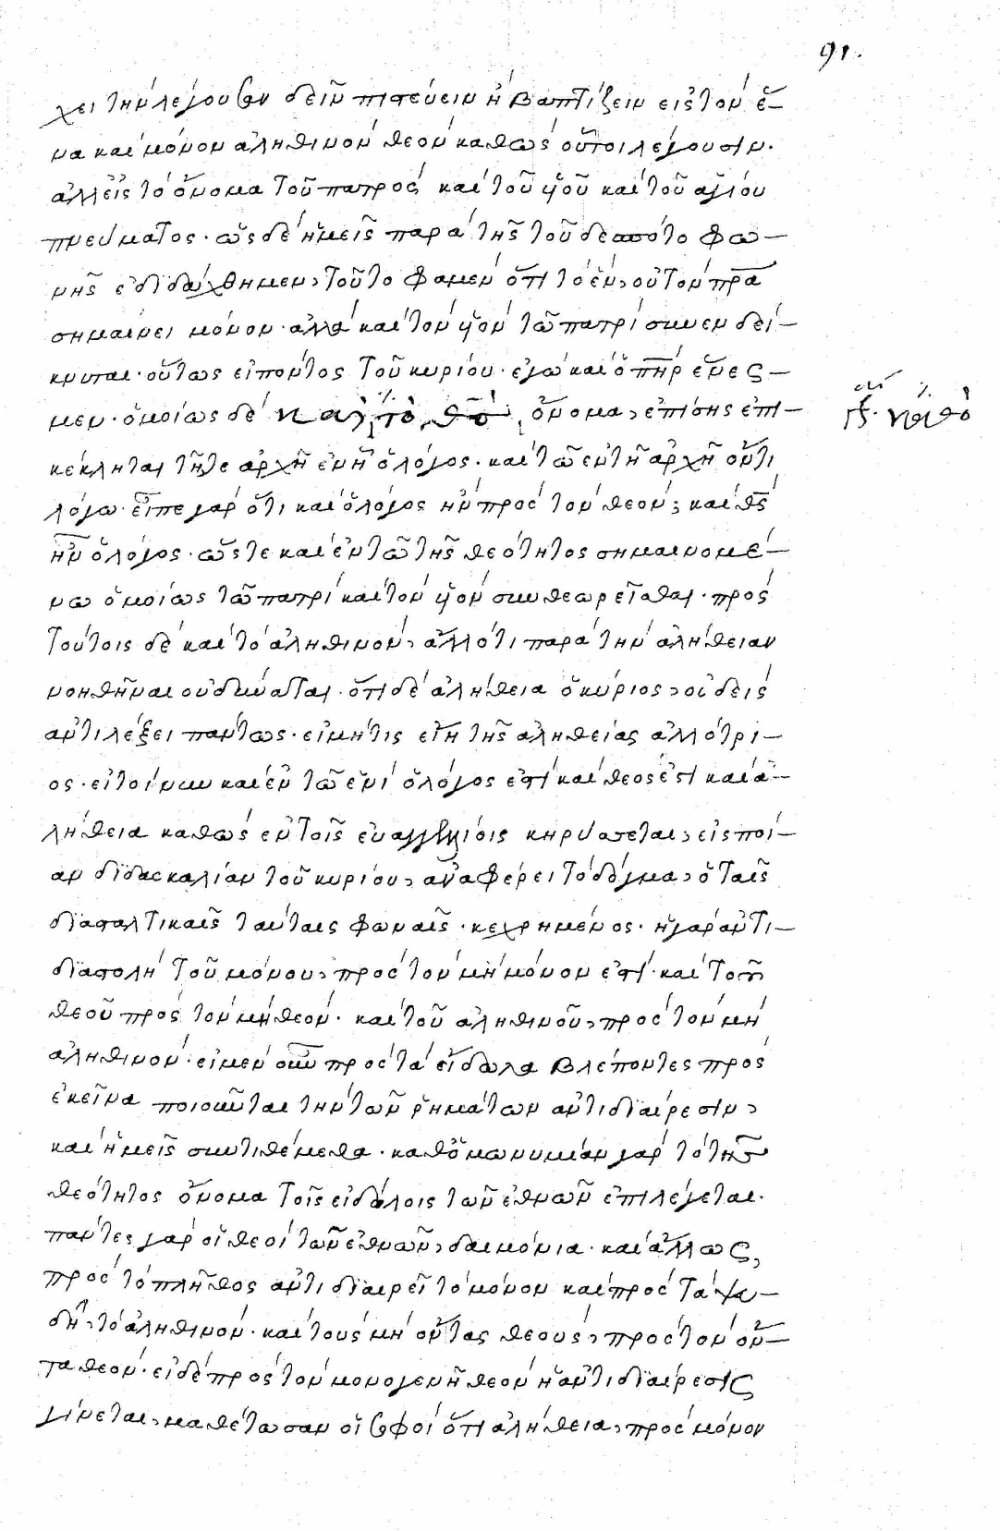 91.
χει τὴν λέγουσαν δεῖν πιστεύειν ἢ βαπτίζειν εἰς τὸν ἕ–
να καὶ μόνον ἀληθινὸν θεὸν καθὼς οὗτοι λέγουσιν.
ἀλλ' εἰς τὸ ὄνομα τοῦ πατρὸς, καὶ τοῦ υἱοῦ καὶ τοῦ ἁγίου
πνεύματος· ὡς δὲ ἡμεῖς παρὰ τῆς τοῦ δεσπότο φω–
νῆς ἐδιδάχθημεν, τοῦτο φαμὲν ὅτι τὸ ἓν, οὐ τὸν πρα
σημαίνει μόνον· ἀλλὰ καὶ τὸν υἱὸν τῷ πατρὶ συνενδεί–
κνυται· οὕτως εἰπόντος τοῦ κυρίου· ἐγὼ καὶ ὁ πηρ ἕν ἐς–
μεν· ὁμοίως δὲ καὶ τὸ θῦ, ὄνομα, ἐπίσης ἐπι–
κέκληται τῇ τε ἀρχῇ ἐν ᾗ ὁ λόγος· καὶ τῷ ἐν τῇ ἀρχῇ ὄντι
λόγῳ· εἶπε γὰρ ὅτι καὶ ὁ λόγος ἦν πρὸς τὸν θεόν; καὶ θς
ἦν ὁ λόγος· ὥστε καὶ ἐν τῷ τῆς θεότητος σημαινομέ–
νῳ ὁμοίως τῷ πατρὶ καὶ τὸν υἱὸν συνθεωρεῖσθαι· πρὸς
τούτοις δὲ καὶ τὸ ἀληθινὸν, ἄλλό τι παρὰ τὴν ἀλήθειαν
νοηθῆναι οὐ δύναται· ὅτι δὲ ἀλήθεια ὁ κύριος, οὐδεὶς
ἀντιλέξει πάντως· εἰ μή τις εἴη τῆς ἀληθείας ἀλλότρι–
ος· εἰ τοίνυν καὶ ἐν τῷ ἑνὶ ὁ λόγος ἐστὶ καὶ θεὸς ἐστι καὶ ἀ–
λήθεια καθὼς ἐν τοῖς εὐαγγελίοις κηρύσσεται, εἰς ποί–
αν διδασκαλίαν τοῦ κυρίου, ἀναφέρει τὸ δόγμα, ὁ ταῖς
διασταλτικαῖς ταύταις φωναῖς· κεχρημένος· ἡ γὰρ ἀντι–
διαστολὴ τοῦ μόνου, πρὸς τὸν μὴ μόνον ἐστὶ· καὶ τοῦ
θεοῦ πρὸς τὸν μὴ θεόν· καὶ τοῦ ἀληθινοῦ, πρὸς τὸν μὴ
ἀληθινόν· εἰ μὲν οὖν πρὸς τὰ εἴδωλα βλέποντες πρὸς
ἐκεῖνα ποιοῦνται τὴν τῶν ῥημάτων ἀντιδιαίρεσιν,
καὶ ἡμεῖς συντιθέμεθα· καθ' ὁμωνυμίαν γὰρ τὸ τῆς
θεότητος ὄνομα τοῖς εἰδώλοις τῶν ἐθνῶν ἐπιλέγεται.
πάντες γὰρ οἱ θεοὶ τῶν ἐθνῶν, δαιμόνια· καὶ ἄλλως,
πρὸς τὸ πλῆθος ἀντιδιαιρεῖ τὸ μόνον καὶ πρὸς τὰ ψευ–
δῆ, τὸ ἀληθινόν· καὶ τοὺς μὴ ὄντας θεοὺς, πρὸς τὸν ὄν–
τα θεόν· εἰ δὲ πρὸς τὸν μονογενῆ θεὸν ἡ ἀντιδιαίρεσις
γίνεται, μαθέτωσαν οἱ σοφοὶ ὅτι ἀλήθεια, πρὸς μόνον